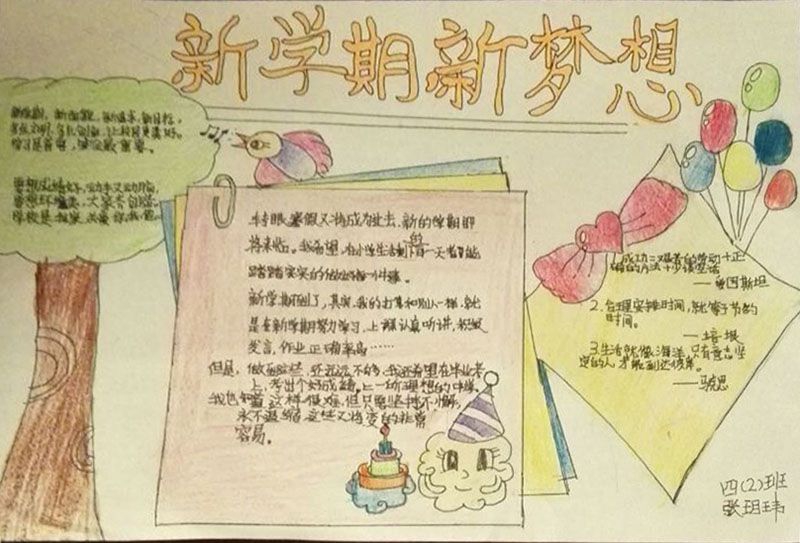 新学期新梦想
新学期，新面貌，新追求，新目标，
让校园更美好。
学习是首要，
重要。
要想成绩好，动手又动脑，
要想环境美，大家齐
学校是我家，
转眼暑假又将成为过去，新的学期即
将来临。我希望，在小学生活剩下的每一天都能
踏踏实实的做好每一件事。
新学期到了，其实，我的打算和别人一样，就
是在新学期努力学习，上课认真听讲，积极
发言，作业正确率高……
但是，做到这些，还远远不够，我还希望在毕业考
上，考出个好成绩。上一所理想的中学。
我也知道，这样很难，但只要坚持不懈，
永不退缩，这些又将变的非常
容易。
1.成功=艰苦的劳动+正
确的方法+少谈空话
——爱因斯坦
2.合理安排时间，就等于节约
时间。
——培根
3.生活就像海洋，只有意志坚
定的人，才能到达彼岸。
——马克思
四(2)班
张玥玮